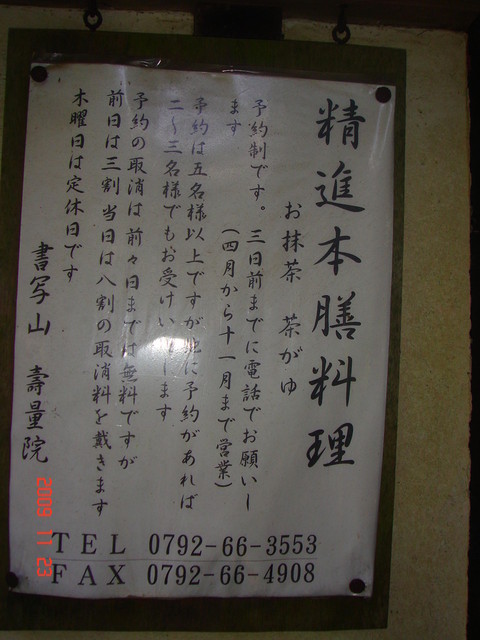 精進本膳料理
お抹茶 茶がゆ
予約制です。三日前までに電話でお願いし
ます (四月から十一月まで営業)
予約は五名様以上ですが他に予約があれば
二〜三名様でもお受けいたします
予約の取消は前々日までは無料ですが
前日は三割 当日は八割の取消料を戴きます
木曜日は定休日です
書写山 壽量院
TEL 0792-66-3553
FAX 0792-66-4908
2009 11 23